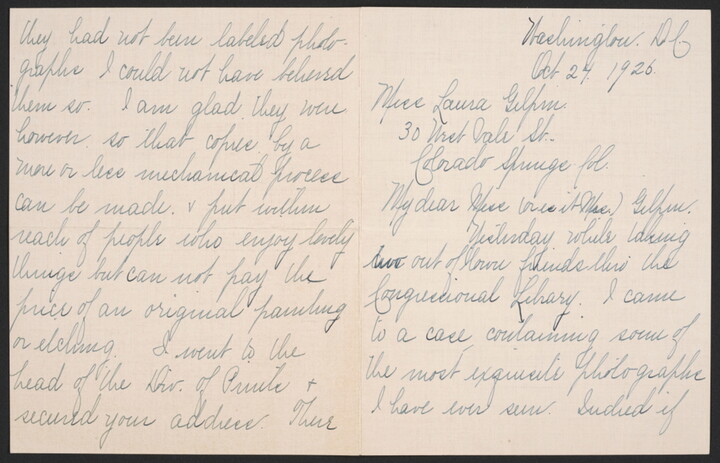 Washington. D.C.
Oct 27, 1926.
Miss Laura Gilpin.
30 West Dale St.
Colorado Springs Col.
My dear Miss (or is it Mrs.) Gilpin.
Yesterday while taking
two out of town friends thro the
Congressional Library. I came
to a case containing some of
the most exquisite photographs
I have ever seen. Indeed if
they had not been labeled photo-
graphs I could not have believed
them so. I am glad they were
however so that copies by a
more or less mechanical process
can be made. & put within
reach of people who enjoy lovely
things but can not pay the
price of an original painting
or etching. I went to the
head of the Div. of Prints &
secured your address. There